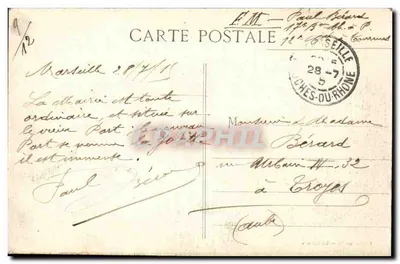 9
12
F M - Paul Bérard
CARTE POSTALE
28-7
BOUCHES-DU-RHONE
Marseille 28/7/15
La Mairie est toute
ordinaire, et située sur
le vieux Port, le nouveau
Port se nomme la Joliette
il est immense.
Paul Bérard
Monsieur & Madame
Bérard
rue Urbain IV. 32
à Troyes
(aube)